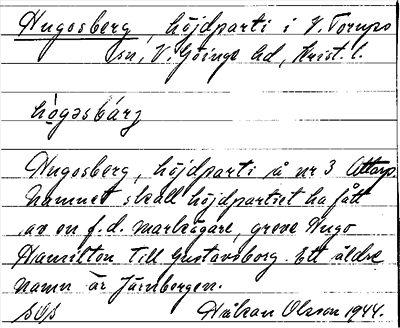 Hugosberg, höjdparti i V. Torups
sn, V. Göinge hd, Krist. l.
hǫgəsbárj
Hugosberg, höjdparti å nr 3 Attarp.
Namnet skall höjdpartiet ha fått
av en f.d. markägare, greve Hugo
Hamilton till Gustavsborg. Ett äldre
namn är Järnbergen.
Håkan Olsson 1944.